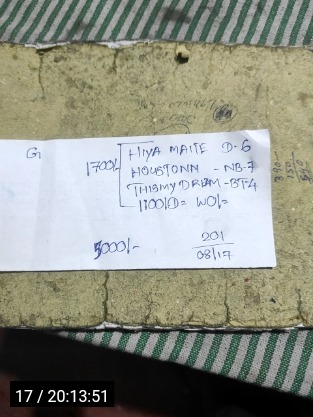 G
1700/- HIYA MAITE D-6
HOUSTONN - NB-7
THISMYDRBM-BT-4
1100/D= WO/=
5000/-
201
08/17
17 / 20:13:51